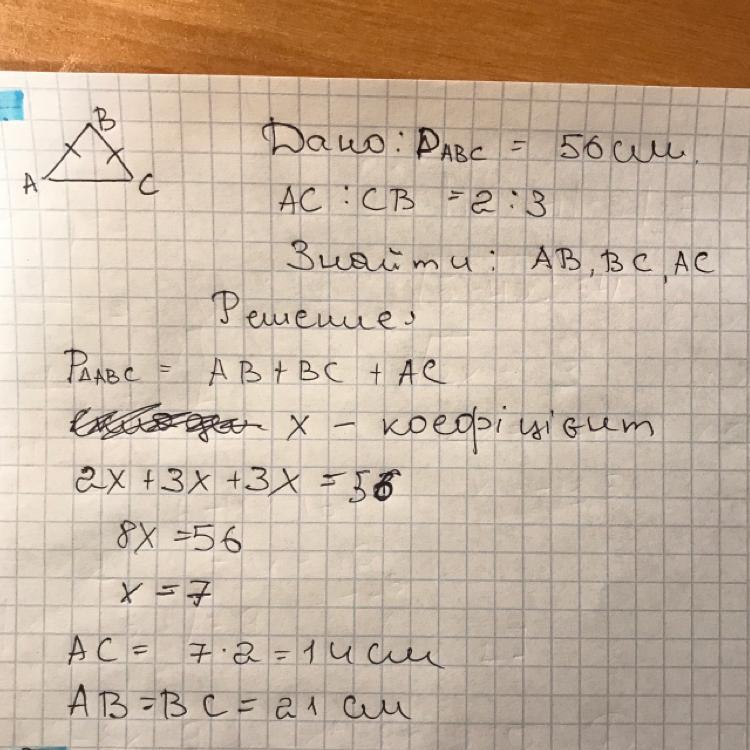 B
A
C
Дано: P ABC = 56 см.
AC : CB = 2 : 3
Знайти: AB, BC, AC
Решение:
P△ABC = AB + BC + AC
x - коефіцієнт
2x + 3x + 3x = 56
8x = 56
x = 7
AC = 7 · 2 = 14 см
AB = BC = 21 см